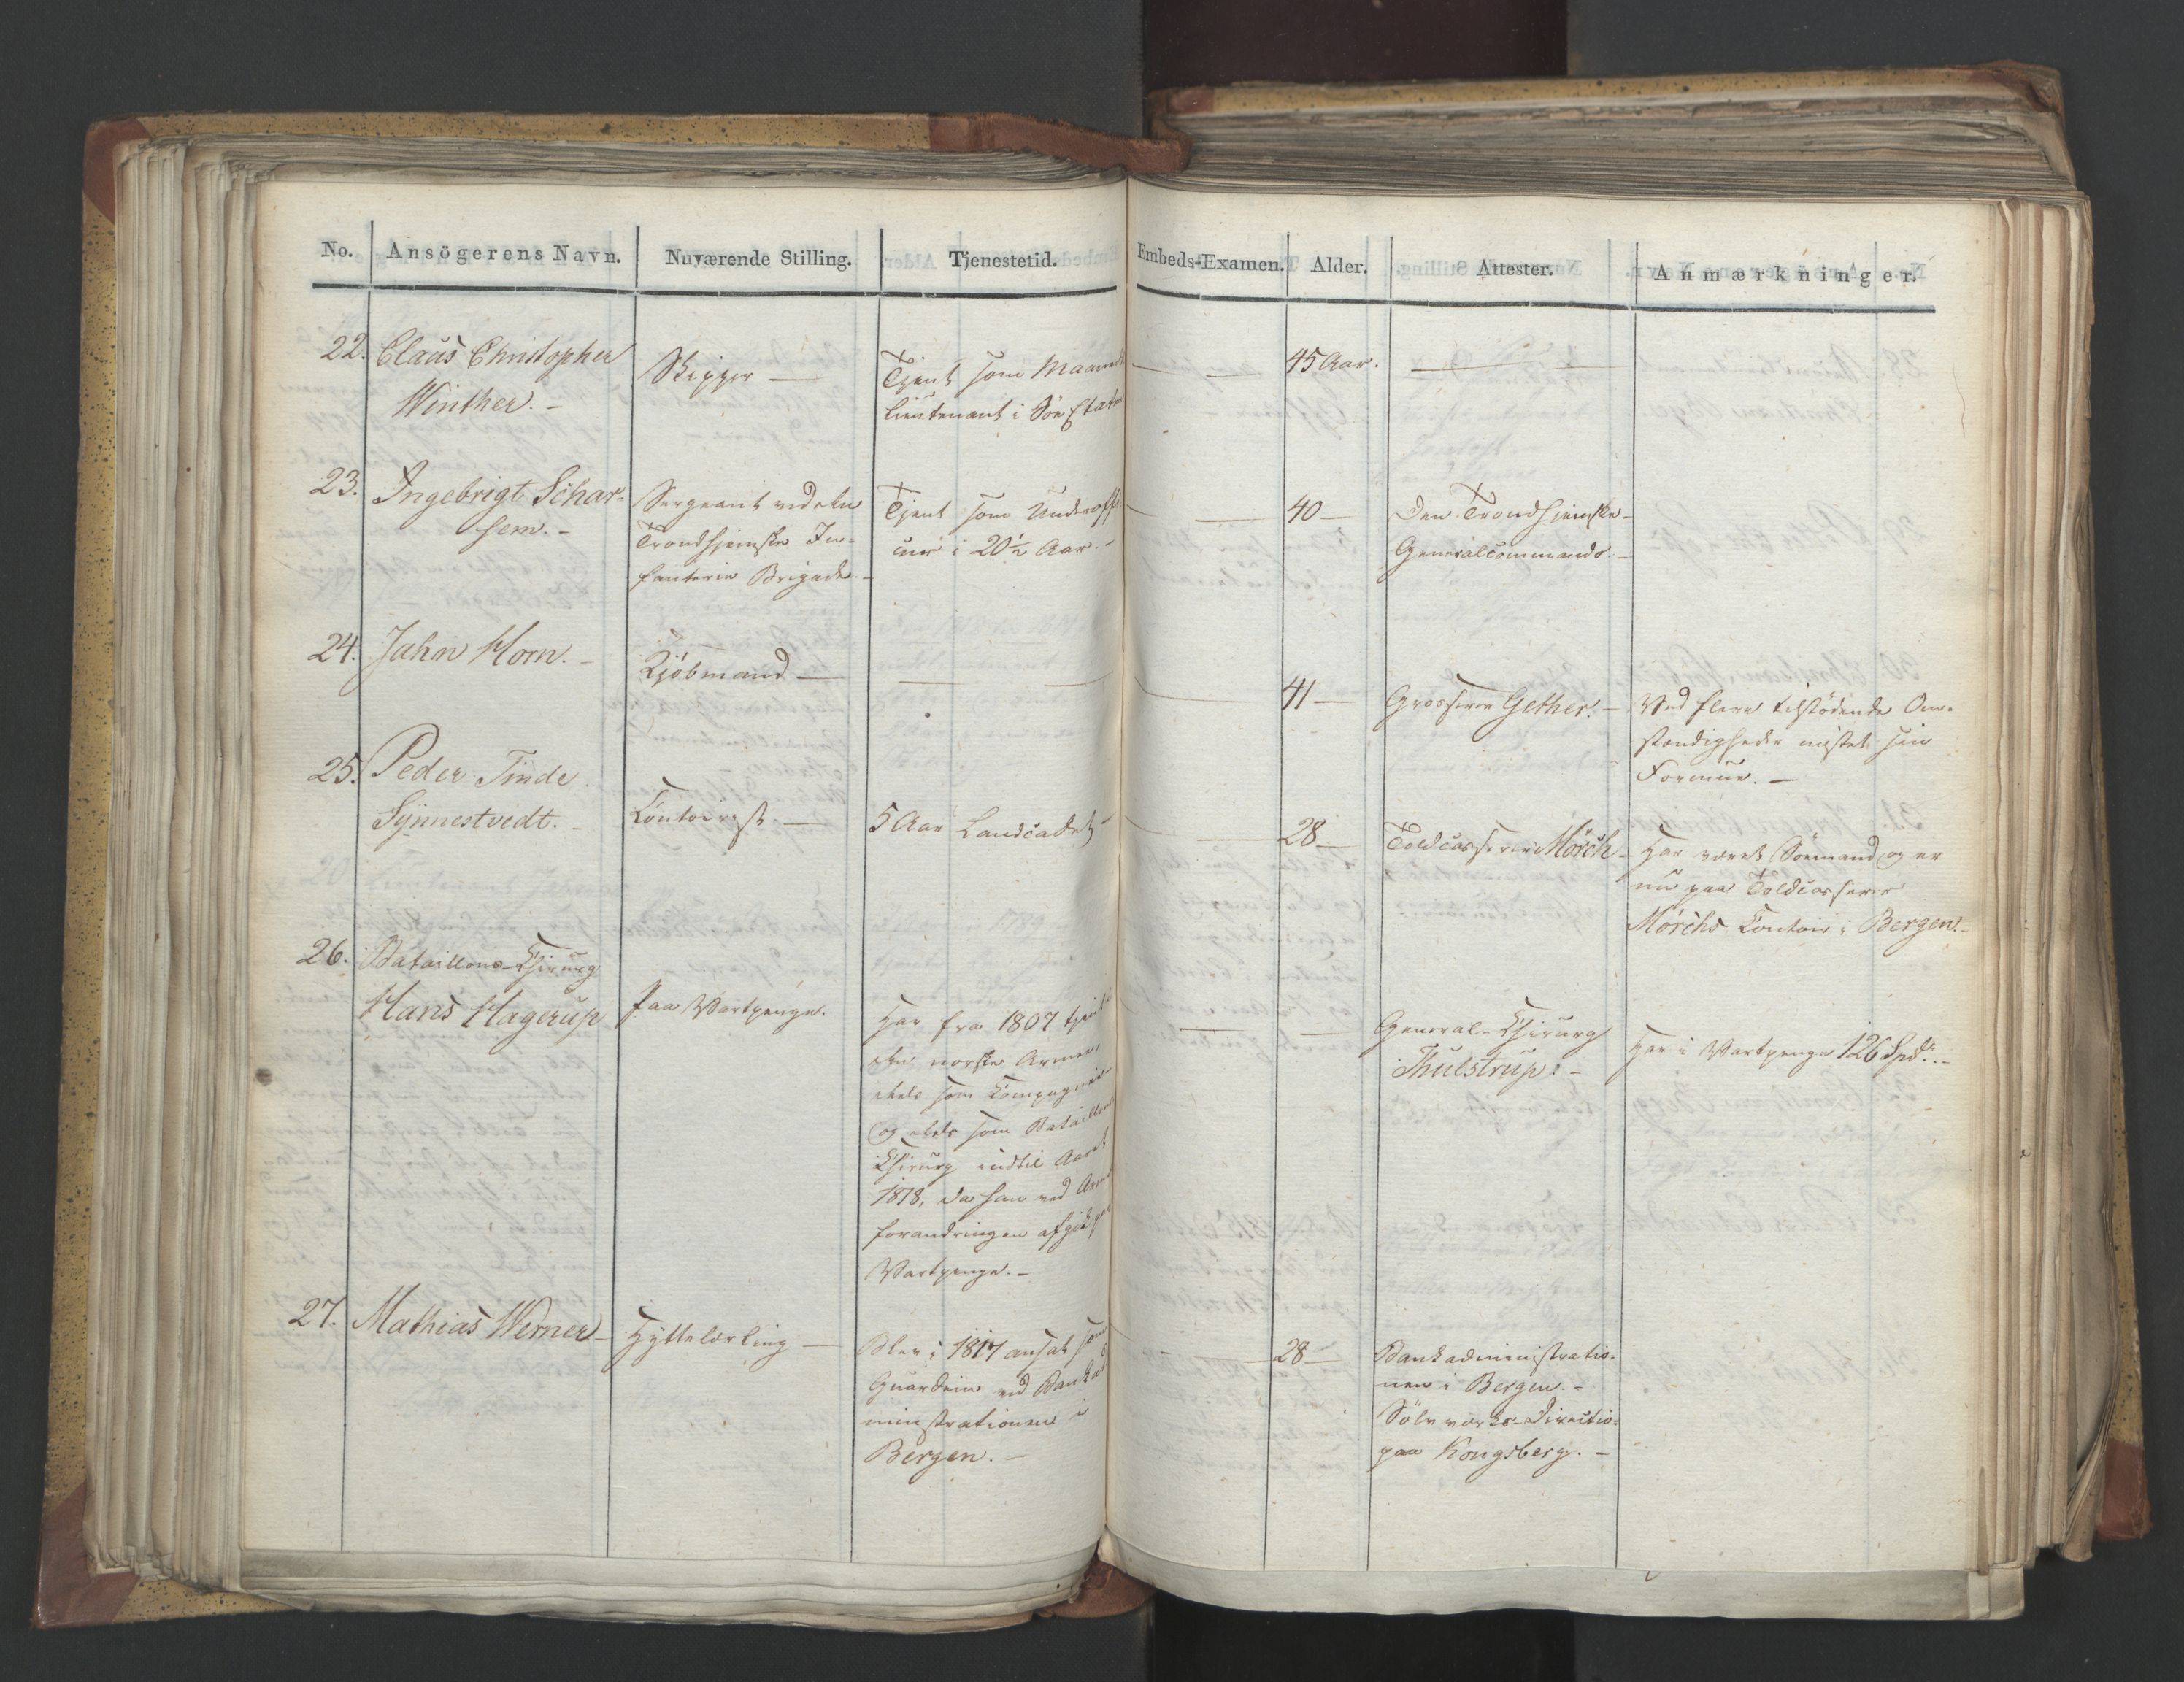 No. Ansögerens Navn. Nuværende Stilling. Tjenestetid. Embeds-Examen. Alder. Attester. Anmærkninger.
22. Claus Christopher
Winther. –
Skipper —
Tjent som Maaneds
Lieutenant i Söe Etaten
— — 45 Aar. —
23. Ingebrigt Schar-
hem. –
Sergeant ved den
Trondhjemske In-
fanterie Brigade. –
Tjent som Underoffi-
ceer i 20½ Aar. –
— 40 —
Den Trondhjemske
Generalcommando. –
24. Jahn Horn. –
Kjöbmand —
— —
— 41 —
Grosserer Gether. –
Ved flere tilstödende Om-
stændigheder mistet sin
Formue. –
25. Peder Tinde
Synnestvedt. –
Contoirist. —
5 Aar Landcadet
— 28 —
Toldcasserer Mörch –
Har været Sömand og er
nu paa Toldcasserer
Mörchs Contoir i Bergen. –
26. Batallions-Chirurg
Hans Hagerup
Paa Vartpenge.
Har fra 1807 tjent i
den norske Armee,
deels som Compagnie-
og deels som Bataillons
Chirurg indtil Aaret
1818, da han ved Armee
forandringen afgik paa
Vartpenge. –
— —
General-Chirurg
Thulstrup. –
Har i Vartpenge 126 Spd. –
27. Mathias Werner –
Hyttelærling —
Blev i 1817 ansat som
Guardein ved Bankad
ministrationen i
Bergen. –
— 28 —
Bankadministratio-
nen i Bergen. –
Sölvværks-Directio-
paa Kongsberg. –